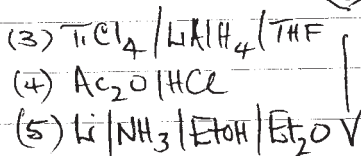 (3) TiCl4 / LiAlH4 / THF
(4) Ac2O / HCl
(5) Li / NH3 / EtOH / Et2O